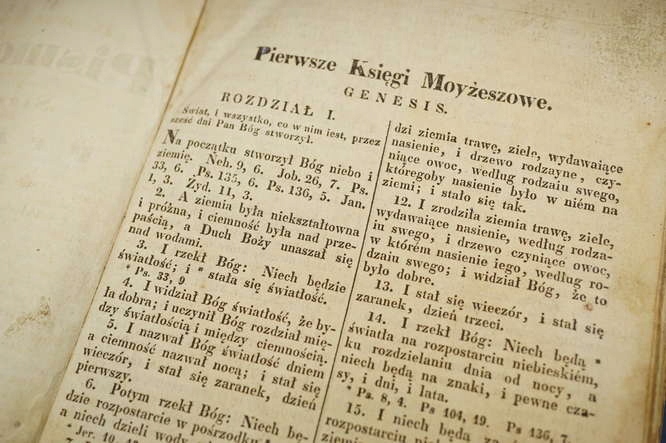 Pierwsze Księgi Moyżeszowe.
GENESIS.
ROZDZIAŁ I.
Świat, i wszystko, co w nim iest, przez
sześć dni Pan Bóg stworzył.
Na początku stworzył Bóg niebo i
ziemię. Neh. 9, 6. Job. 26, 7. Ps.
33, 6. Ps. 135, 6. Ps. 136, 5. Jan.
1, 3. Żyd. 11, 3.
2. A ziemia była niekształtowna
i próżna, i ciemność była nad prze-
paścią, a Duch Boży unaszał się
nad wodami.
3. I rzekł Bóg: Niech będzie
światłość; i * stała się światłość.
* Ps. 33, 9
4. I widział Bóg światłość, że by-
ła dobra; i uczynił Bóg rozdział mię-
dzy światłością i między ciemnością.
5. I nazwał Bóg światłość dniem
a ciemność nazwał nocą; i stał się
wieczór, i stał się zaranek, dzień
pierwszy.
6. Potym rzekł Bóg: Niech bę-
dzie rozpostarcie w pośrzodku
a niech dzieli wody
* Jer. 10,
dzi ziemia trawę, ziele, wydawaiące
nasienie, i drzewo rodzayne, czy-
niące owoc, według rodzaiu swego,
któregoby nasienie było w niém na
ziemi; i stało się tak.
12. I zrodziła ziemia trawę, ziele,
wydawaiące nasienie, według rodza-
iu swego, i drzewo czyniące owoc,
w którém nasienie iego, według ro-
dzaiu swego; i widział Bóg, że to
było dobre.
13. I stał się wieczór, i stał się
zaranek, dzień trzeci.
14. I rzekł Bóg: Niech będą *
światła na rozpostarciu niebieskiém,
ku rozdzielaniu dnia od nocy, a
niech będą na znaki, i pewne cza-
sy, i dni, i lata.
* Ps. 8, 4. Ps 104, 19. Ps 136, 7.
15. I niech będą